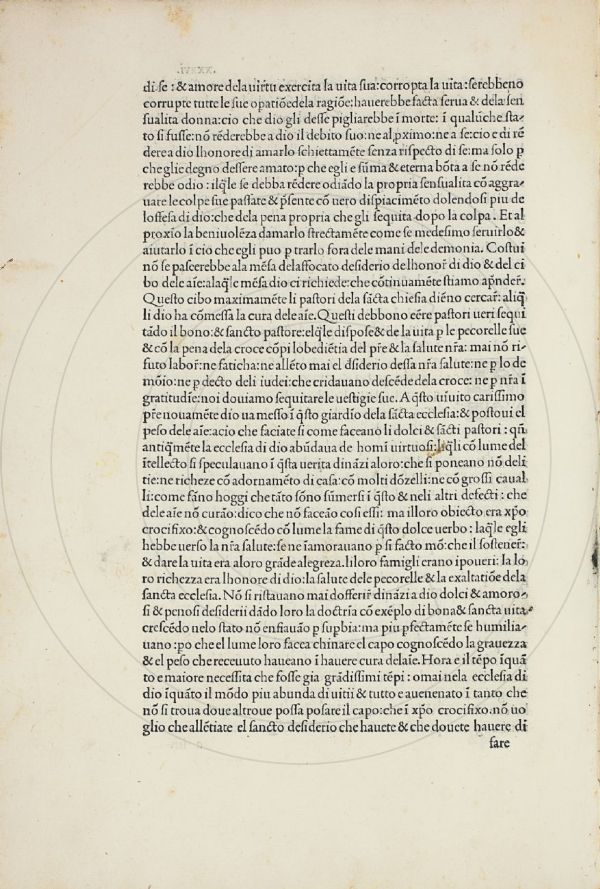 .XXXVI.
di se: & amore dela uirtu exercita la uita sua: corropta la uita: serebbeno
corrupte tutte le sue opatiõe dela ragiõe: hauerebbe facta serua & dela sen
sualita donna: cio che dio gli desse pigliarebbe ĩ morte: ĩ qualũche sta-
to si fusse: nõ rẽderebbe a dio il debito suo: ne al ꝓximo: ne a se: cio e di rẽ
dere a dio lhonore di amarlo schiettamẽte senza rispecto di se: ma solo p
che glie degno dessere amato: p che egli e sũma & eterna bõta a se nõ rẽde
rebbe odio: ilq̃le se debba rẽdere odiãdo la propria sensualita cõ aggra-
uare le colpe sue passate & p̃sente cõ uero dispiacimẽto dolendosi piu de
loffesa di dio: che dela pena propria che gli sequita dopo la colpa. Et al
proxĩo la beniuolẽza damarlo strectamẽte come se medesimo seruirlo &
aiutarlo ĩ cio che egli puo p trarlo fora dele mani dele demonia. Costui
nõ se pascerebbe ala mẽsa delaffocato desiderio de lhonor̃ di dio & del ci
bo dele aĩe: alaq̃le mẽsa dio ci richiede: che cõtinuamẽte stiamo apñder̃.
Questo cibo maximamẽte li pastori dela sãcta chiesia diẽno cercar̃: aliq̃
li dio ha cõmessa la cura dele aĩe. Questi debbono eẽre pastori ueri sequi
tãdo il bono: & sancto pastore: elq̃le dispose & de la uita p le pecorelle sue
& cõ la pena dela croce cõpi lobediẽtia del pr̃e & la salute nr̃a: mai nõ ri-
futo labor̃: ne faticha: ne allẽto mai el dsiderio dessa nr̃a salute: ne p lo de
mõio: ne p decto deli iudei: che cridauano descẽde dela croce: ne p nr̃a ĩ
gratitudĩe: noi douiamo sequitare le uestigie sue. A q̃sto uĩuito carissimo
pr̃e nouamẽte dio ua messo ĩ q̃sto giardĩo dela sãcta ecclesia: & postoui el
peso dele aĩe: acio che faciate si come faceano li dolci & sãcti pastori: qñ
antiq̃mẽte la ecclesia di dio abũdaua de homĩ uirtuosi: liq̃li cõ lume del
ĩtellecto si speculauano ĩ q̃sta uerita dinãzi aloro: che si poneano nõ deli
tie: ne richeze cõ adornamẽto di casa: cõ molti dõzelli: ne cõ grossi caual
li: come fãno hoggi che tãto sõno sũmersi ĩ q̃sto & neli altri defecti: che
dele aĩe nõ curão: dico che nõ faceão cosi essi: ma illoro obiecto era xp̃o
crocifixo: & cognoscẽdo cõ lume la fame di q̃sto dolce uerbo: laq̃le egli
hebbe uerso la nr̃a salute: se ne ĩamorauano p si facto mõ: che il sostener̃:
& dare la uita era aloro grãde alegreza. li loro famigli erano ipoueri: la lo
ro richezza era lhonore di dio: la salute dele pecorelle & la exaltatiõe dela
sancta ecclesia. Nõ si ristauano mai dofferir̃ dinãzi a dio dolci & amoro-
si & penosi desiderii dãdo loro la doctrĩa cõ exẽplo di bona & sancta uita
crescẽdo nelo stato nõ enfiauão p supbia: ma piu pfectamẽte se humilia-
uano: po che el lume loro facea chinare el capo cognoscẽdo la grauezza
& el peso che receuuto haueano ĩ hauere cura delaĩe. Hora e il tẽpo ĩquã
to e maiore necessita che fosse gia grãdissimi tẽpi: omai nela ecclesia di
dio ĩquãto il mõdo piu abunda di uitii & tutto e auenenato ĩ tanto che
nõ si troua doue altroue possa posare il capo: che ĩ xp̃o crocifixo. nõ uo
glio che allẽtiate el sancto desiderio che hauete & che douete hauere di
fare